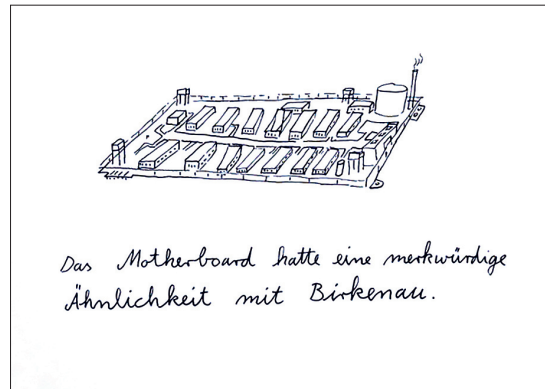 Das Motherboard hatte eine merkwürdige
Ähnlichkeit mit Birkenau.